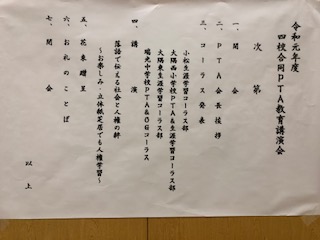 令和元年度
四校合同PTA教育講演会
次第
一、開会
二、PTA会長挨拶
三、コーラス発表
小松生涯学習コーラス部
大隅西小学校PTA&生涯学習コーラス部
大隅東生涯学習コーラス部
瑞光中学校PTA&OGコーラス
四、講演
落語で伝える社会と人権の絆
～お楽しみ・立体紙芝居でも人権学習～
五、花束贈呈
六、お礼のことば
七、閉会
以上